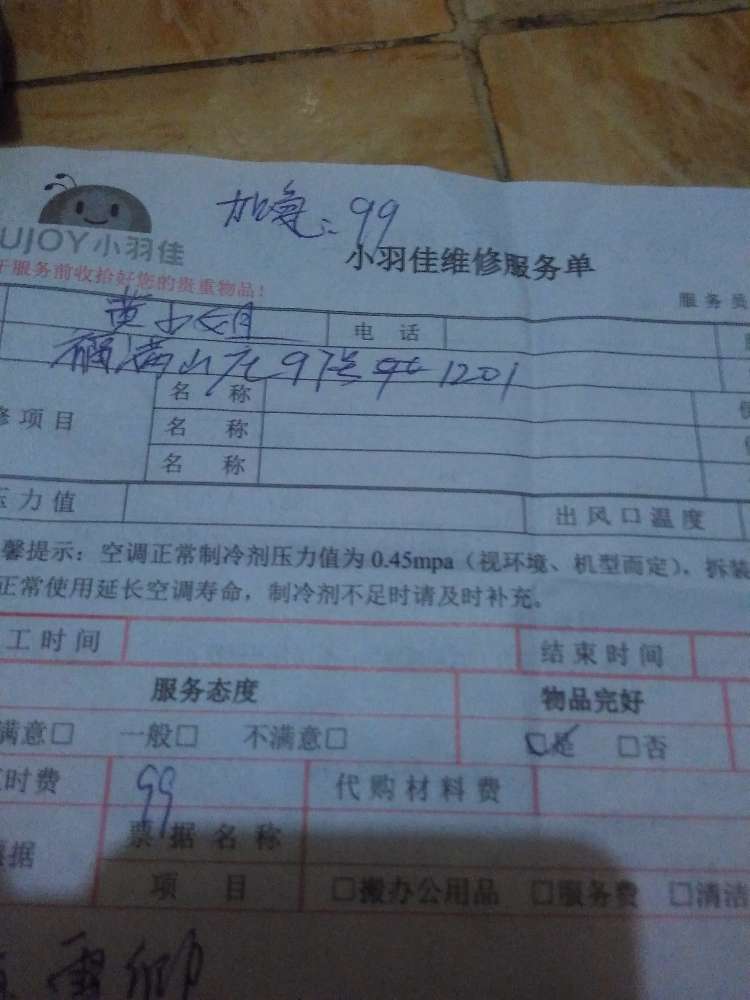 加氟：99
UJOY小羽佳
小羽佳维修服务单
于服务前收拾好您的贵重物品！
服务员
黄小姐
电话
97号 1201
修项目
名称
名称
名称
压力值
出风口温度
馨提示：空调正常制冷剂压力值为0.45mpa（视环境、机型而定），拆装
正常使用延长空调寿命，制冷剂不足时请及时补充。
工时间
结束时间
服务态度
物品完好
满意□ 一般□ 不满意□
□是 □否
时费
99
代购材料费
票据名称
据
项目
□搬办公用品 □服务费 □清洁